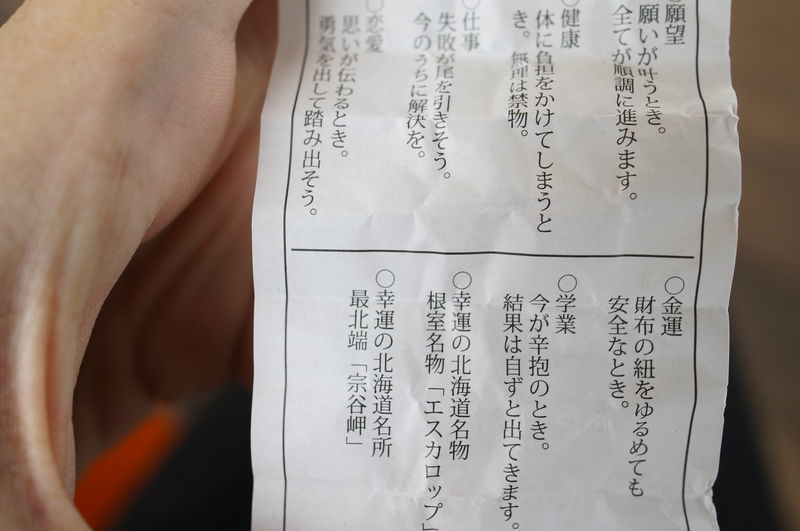 ○願望
願いが叶うとき。
全てが順調に進みます。
○健康
体に負担をかけてしまうと
き。無理は禁物。
○仕事
失敗が尾を引きそう。
今のうちに解決を。
○恋愛
思いが伝わるとき。
勇気を出して踏み出そう。
○金運
財布の紐をゆるめても
安全なとき。
○学業
今が辛抱のとき。
結果は自ずと出てきます。
○幸運の北海道名物
根室名物「エスカロップ」
○幸運の北海道名所
最北端「宗谷岬」